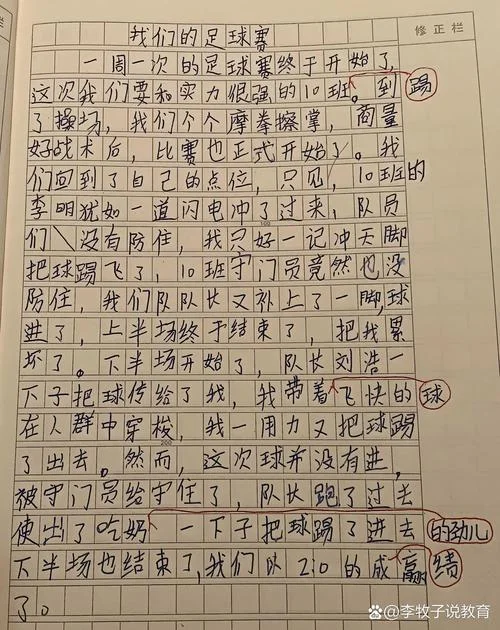 修正栏
我们的足球赛
一周一次的足球赛终于开始了,
这次我们要和实力很强的10班。到踢
了操场,我们个个摩拳擦掌,商量
好战术后,比赛也正式开始了。我
们回到了自己的点位,只见,10班的
李明犹如一道闪电冲了过来,队员
们没有防住,我只好一记冲天脚
把球踢飞了,10班守门员竟然也没
防住,我们队队长又补上了一脚,球
进了,上半场终于结束了,把我累
坏了。下半场开始了,队长刘浩一
下子把球传给了我,我带着飞快的球
在人群中穿梭,我一用力又把球踢
了出去。然而,这次球并没有进,
被守门员给守住了,队长跑了过去
使出了吃奶一下子把球踢了进去的劲儿
下半场也结束了,我们以2:0的成赢绩
了。
100
200
百家号/李牧子说教育